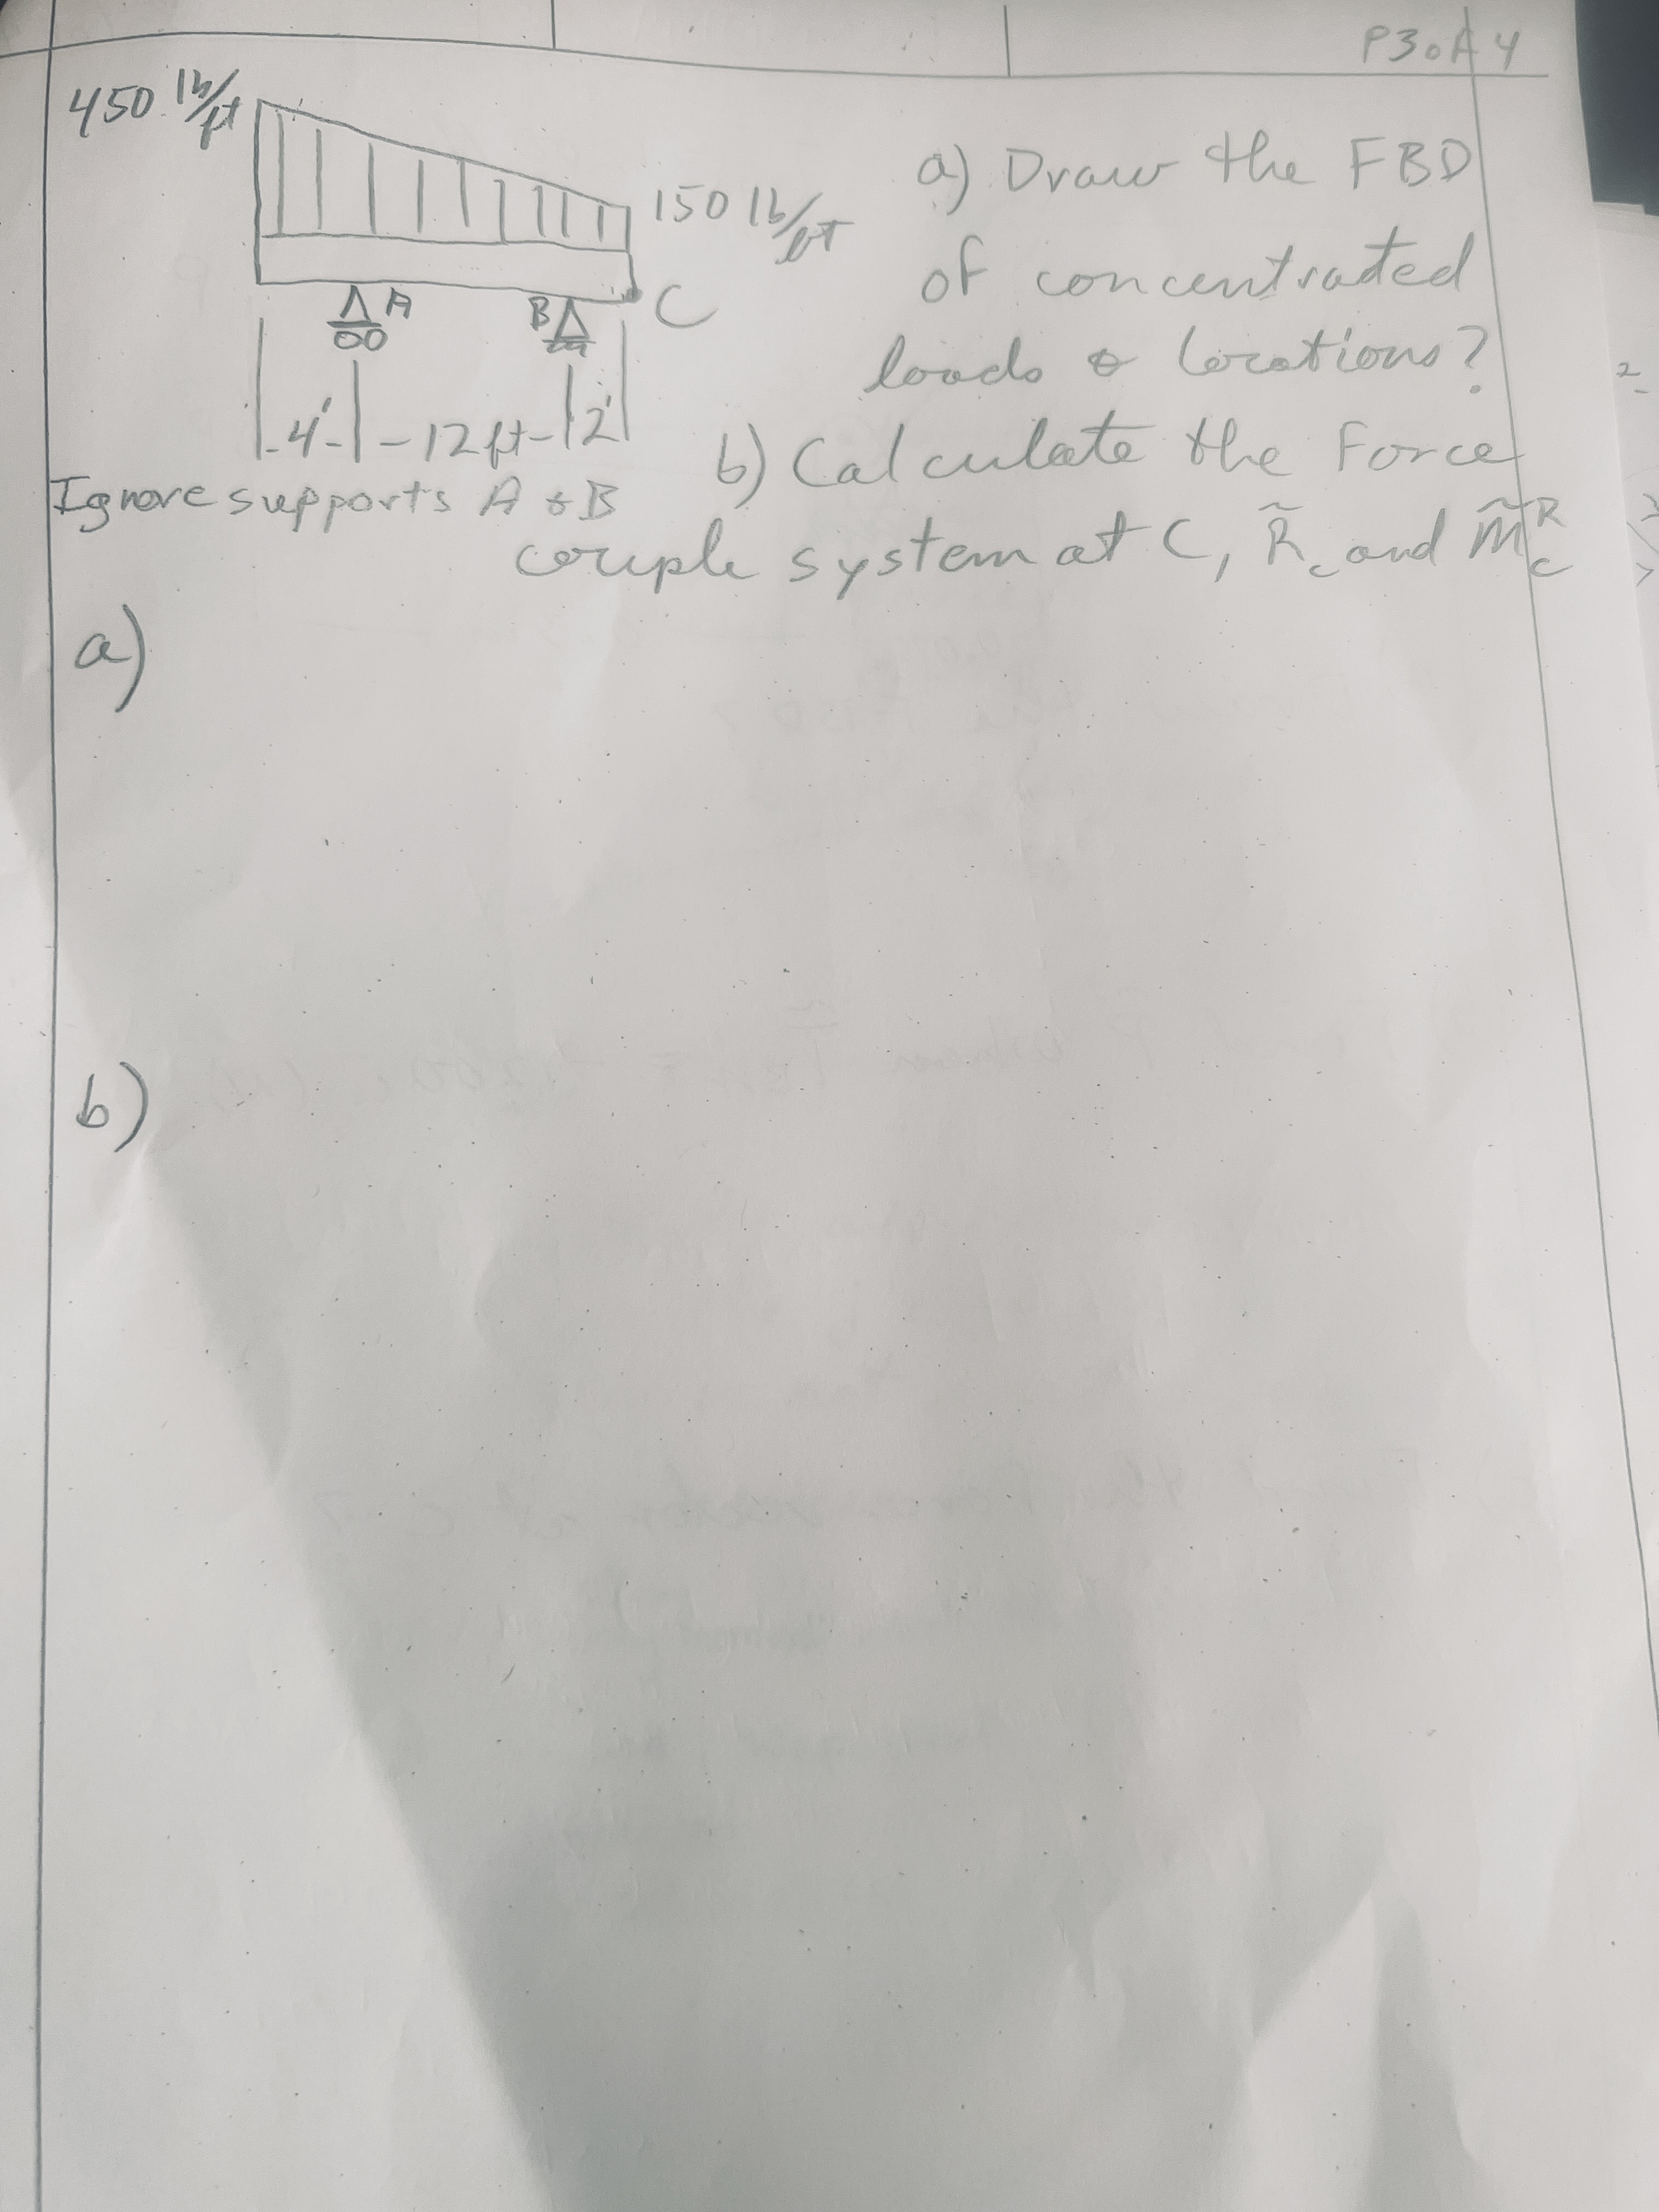 P3 of 4
450 lb/ft
150 lb/ft
A
B
C
4' 12 ft 2'
Ignore supports A & B
a) Draw the FBD
of concentrated
loads & locations?
b) Calculate the Force
couple system at C, R̃c and M̃cᴿ
a)
b)